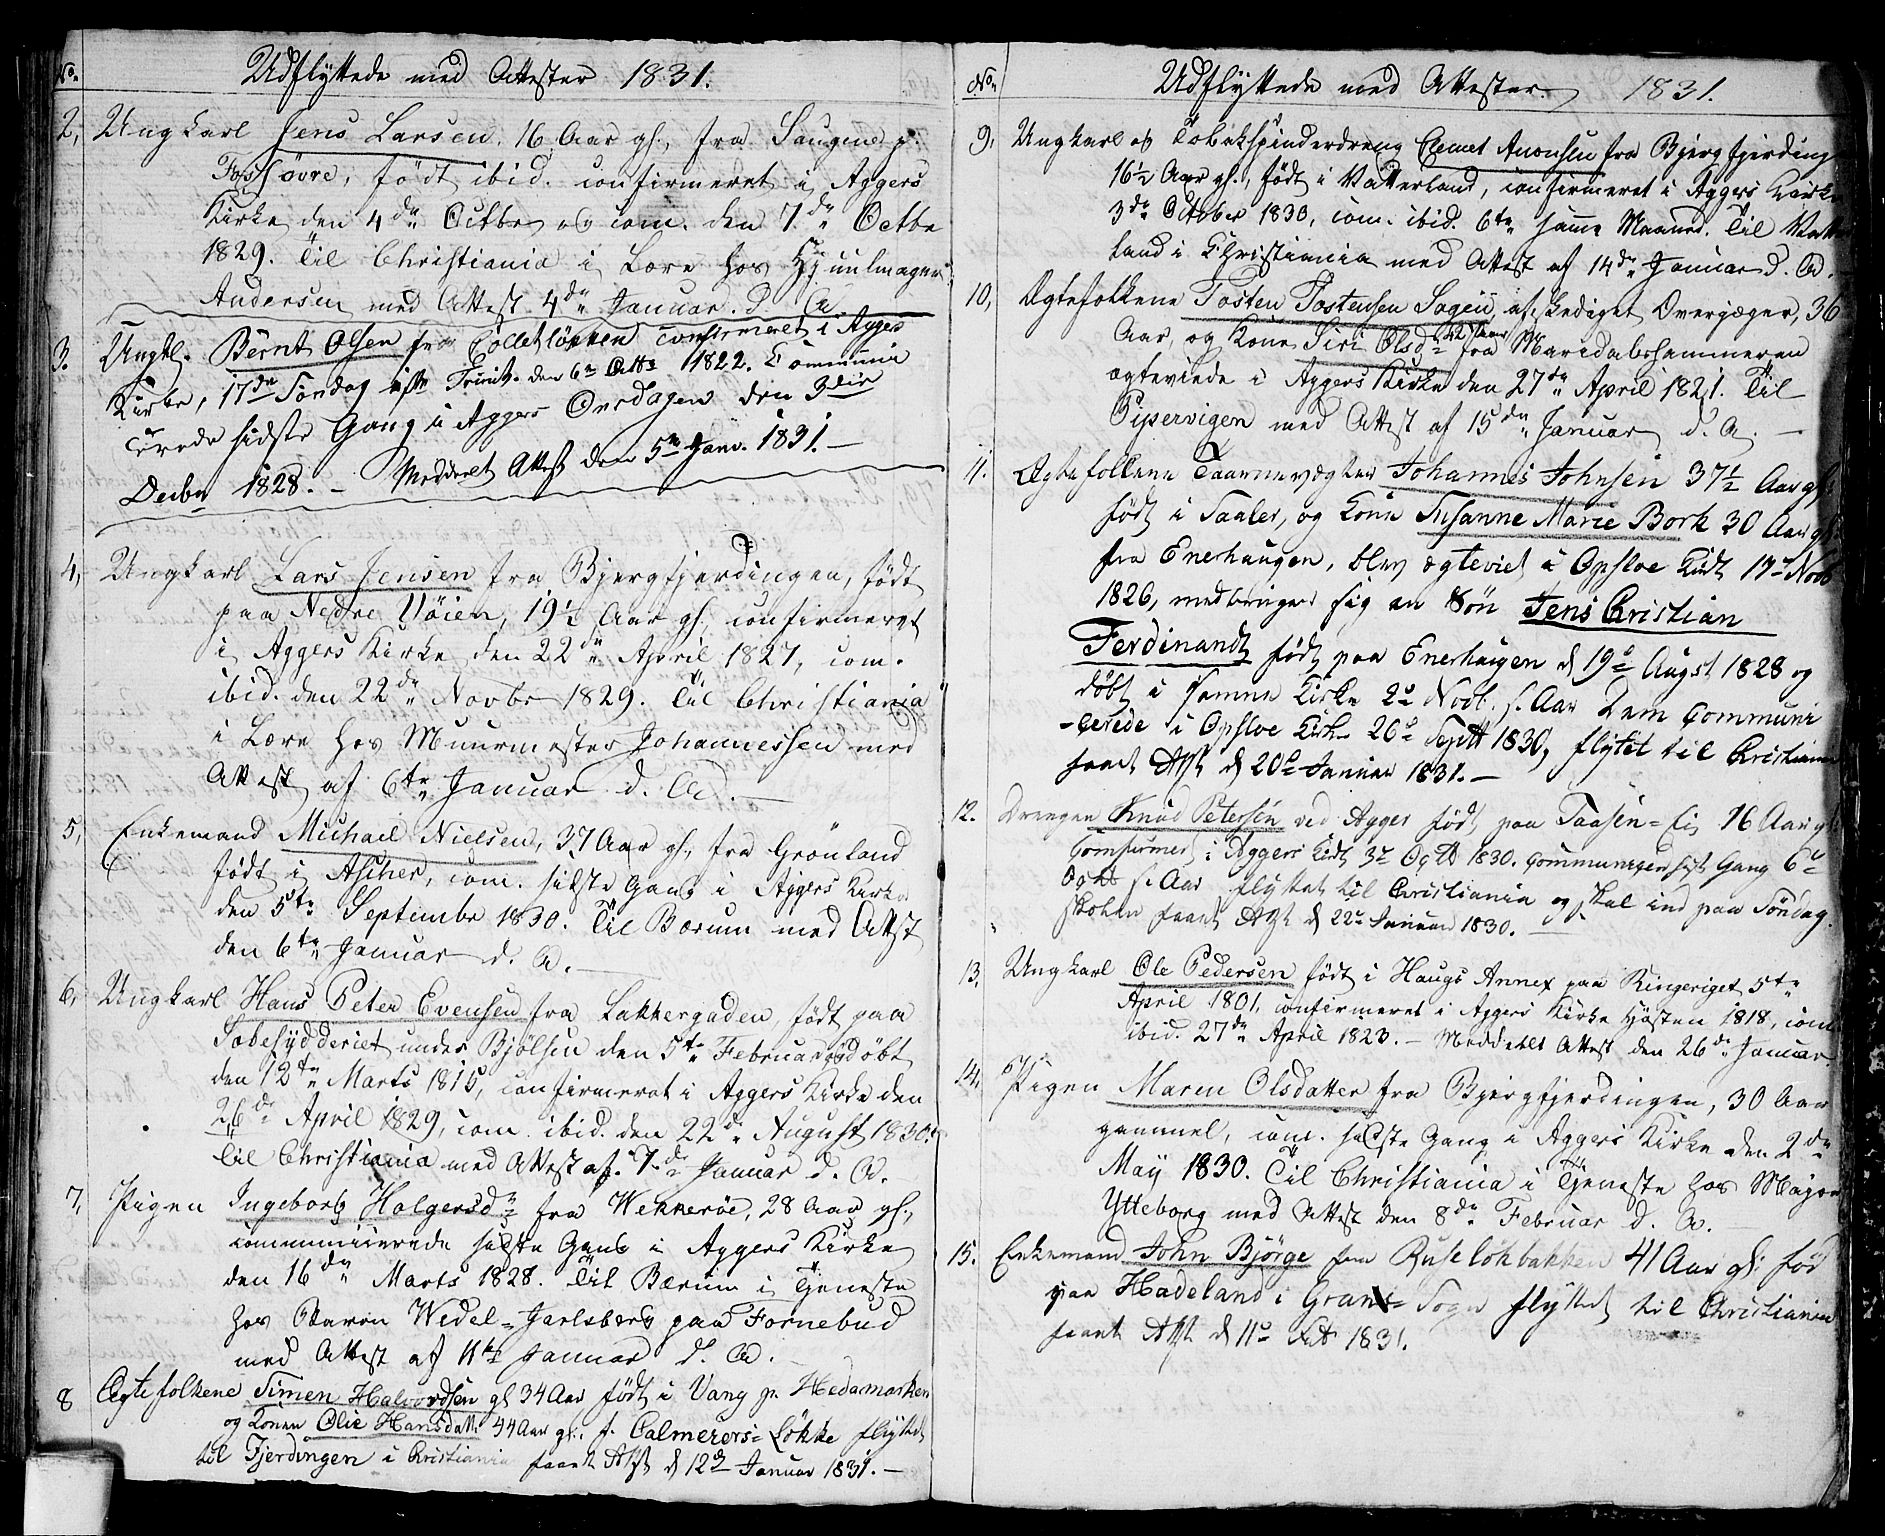 No.
Udflyttede med Attester 1831.
2, Ungkarl Jens Larsen, 16 Aar gl., fra Saugene p.
Fossövre, født ibid. confirmeret i Aggers
Kirke den 4de Octbr og com. den 7de Octbr
1829. Til Christiania i Lære hos Hjuulmager
Andersen med Attest 4de Januar d. A.
3. Ungkl. Bernt Olsen fra Colletløkken confirmeret i Aggers
Kirke, 17de Søndag efter Trinit. den 6te Octb. 1822. Communi-
cerede sidste Gang i Aggers Onsdagen den 3die
Decbr 1828. – Meddeelt Attest den 5te Janv. 1831. –
4, Ungkarl Lars Jensen fra Bjergfjerdingen, født
paa Nedre Vöien, 19½ Aar gl., confirmeret
i Aggers Kirke den 22de April 1827, com.
ibid. den 22de Novbr 1829. Til Christiania
i Lære hos Muurmester Johannessen med
Attest af 6te Januar d. A. –
5, Enkemand Michael Nielsen, 37 Aar gl., fra Grönland
født i Ascher, com. sidste Gang i Aggers Kirke
den 5te Septembr 1830. Til Bærum med Attst
den 6te Januar d. A. –
6, Ungkarl Hans Peter Evensen fra Lakkergaden, født paa
Sæbesydderiet under Bjölsen den 5te Februar og døbt
den 12te Marts 1815, confirmeret i Aggers Kirke den
26de April 1829, com. ibid. den 22de August 1830.
Til Christiania med Attest af 7de Januar d. A.
7, Pigen Ingeborg Holgersdr fra Wekkeröe, 28 Aar gl.,
communicerede sidste Gang i Aggers Kirke
den 16de Marts 1828. Til Bærum i Tjeneste
hos Baron Wedel-Jarlsberg paa Fornebud
med Attest af 11te Januar d. A.
8 Ægtefolkene Simen Halvordsen gl 34 Aar født i Vang p. Hedemarken
og Konen Olie Hansdatt. 44 Aar gl: f. Calmeiers-Løkke flyttet
til Fjerdingen i Christiania faaet Atst d 12te Januar 1831. –
No.
Udflyttede med Attester 1831.
9, Ungkarl og Tobakspinderdreng Clemet Anonsen fra Bjergfjerding
16½ Aar gl., født i Vatterland, confirmeret i Aggers Kirke
3de October 1830, com. ibid. 6te samme Maaned. Til Vatt-
land i Christiania med Attest af 14de Januar d. A.
10, Ægtefolkene Tosten Tostensen Sagen, afskediget Overjæger, 36
Aar, og Kone Siri Olsdr 42 Aar fra Maridalshammeren
ægteviede i Aggers Kirke den 27de April 1821. Til
Pipervigen med Attest af 15de Januar d. A. –
11. Ægtefolkene Taarnevægter Johannes Johnsen 37½ Aar gl:
født i Saaler, og Kone Susanne Marie Bork 30 Aar gl:
fra Enerhaugen, blev ægteviet i Opsloe Kirk 17de Novb
1826, medbringer sig en Sön Jens Christian
Ferdinandt født paa Enerhaugen d 19de Augst 1828 og
døbt i samme Kirke 2de Novb. s. Aar Dem Communi
-cerede i Opsloe Kirke 26de Septb 1830, flyttet til Christiania
faaet Atst d 20de Januar 1831. –
12. Drengen Knud Petersen ved Agger født paa Taasen-Ei 16 Aar gl:
Confirmert i Aggers Kirk 3de Octb 1830. Communiceret sidst Gang 6te
Octb s. Aar flyttet til Christiania og skal ind paa Söndag
skolen faaet Atst d 22de Januar 1830. –
13. Ungkarl Ole Pedersen født i Haugs Annex paa Ringeriget 5te
April 1801, confirmeret i Aggers Kirke Høsten 1818, com
ibid. 27de April 1823. – Meddeelt Attest den 26de Januar
14, Pigen Maren Olsdatter fra Bjergfjerdingen, 30 Aar
gammel, com. sidste Gang i Aggers Kirke den 2de
May 1830. Til Christiania i Tjeneste hos Major
Ytteborg med Attest den 8de Februar d. A.
15. Enkemand John Bjørge fra Ruseløkbakken 41 Aar gl: fød
paa Hadeland i Grans-Sogn flyttet til Christiania
faaet Atst d 11te Feb 1831.